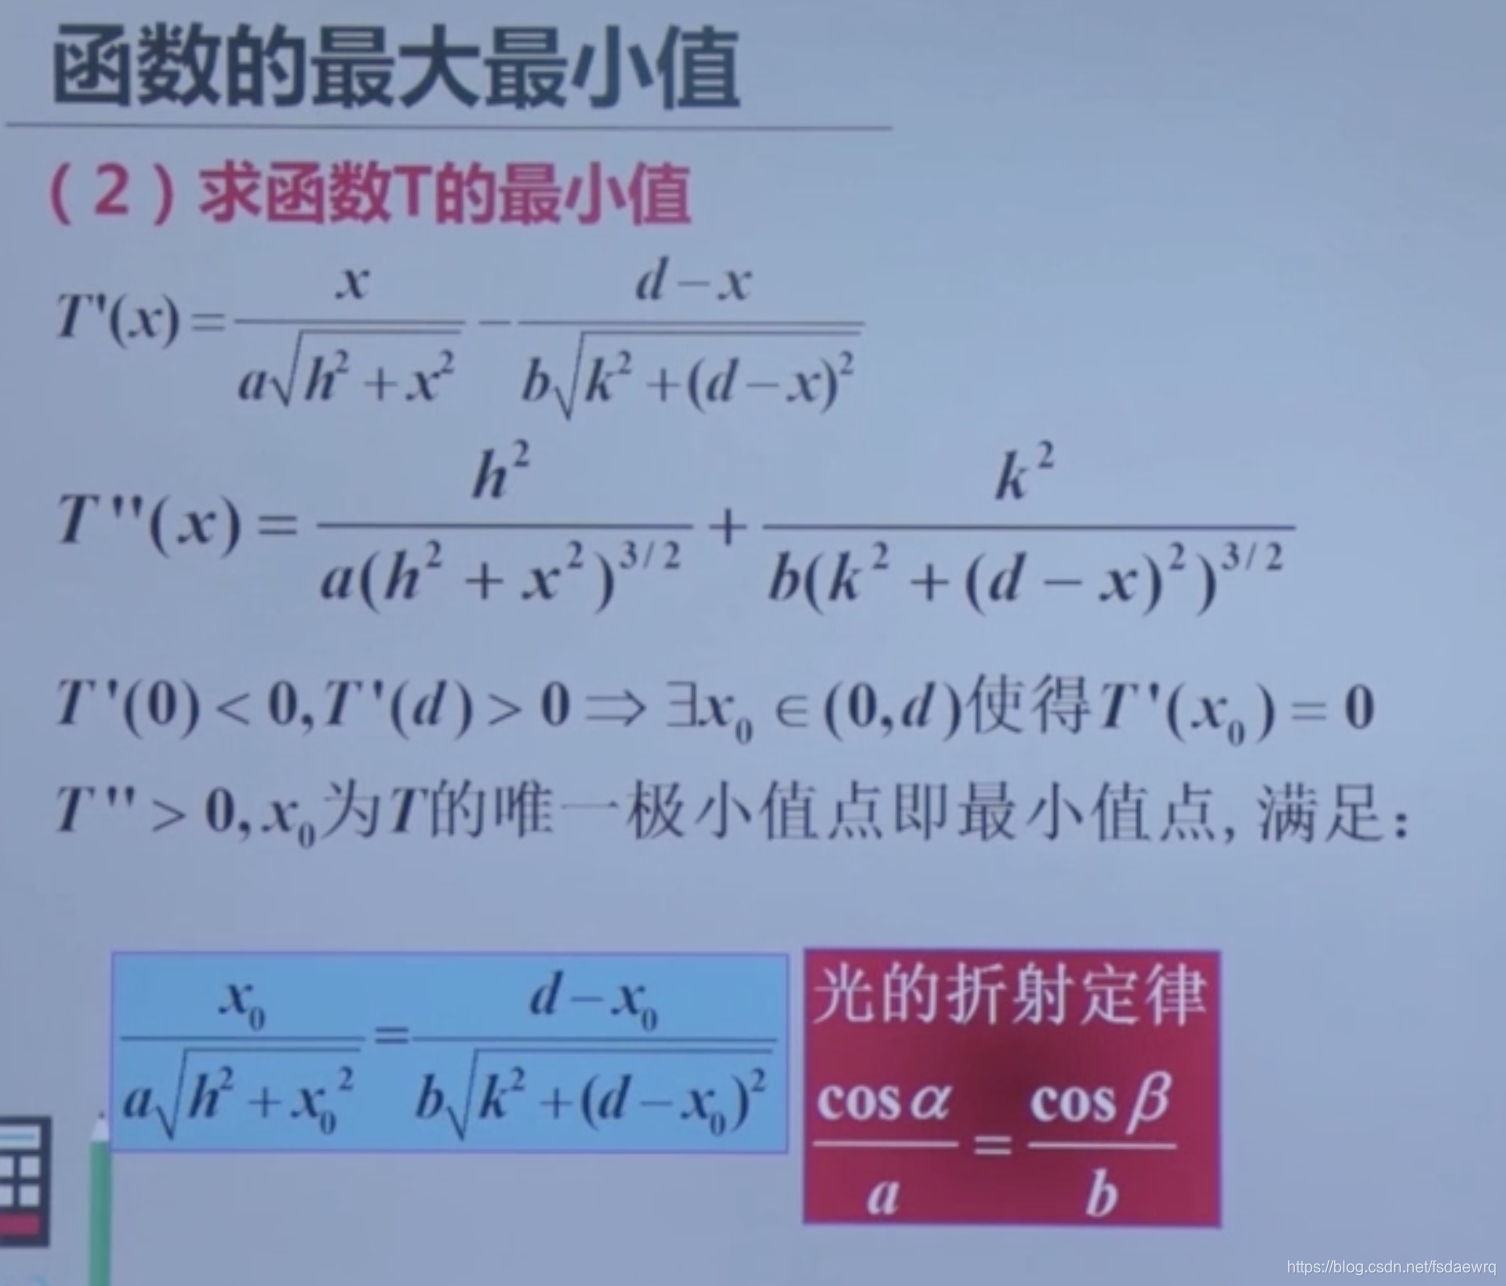 函数的最大最小值
（2）求函数T的最小值
T'(x) = x / (a√(h² + x²)) − (d − x) / (b√(k² + (d − x)²))
T''(x) = h² / (a(h² + x²)^{3/2}) + k² / (b(k² + (d − x)²)^{3/2})
T'(0) < 0, T'(d) > 0 ⇒ ∃x₀ ∈ (0, d)使得T'(x₀) = 0
T'' > 0, x₀为T的唯一极小值点即最小值点, 满足：
x₀ / (a√(h² + x₀²)) = (d − x₀) / (b√(k² + (d − x₀)²))
光的折射定律
cos α / a = cos β / b
https://blog.csdn.net/fsdaewrq